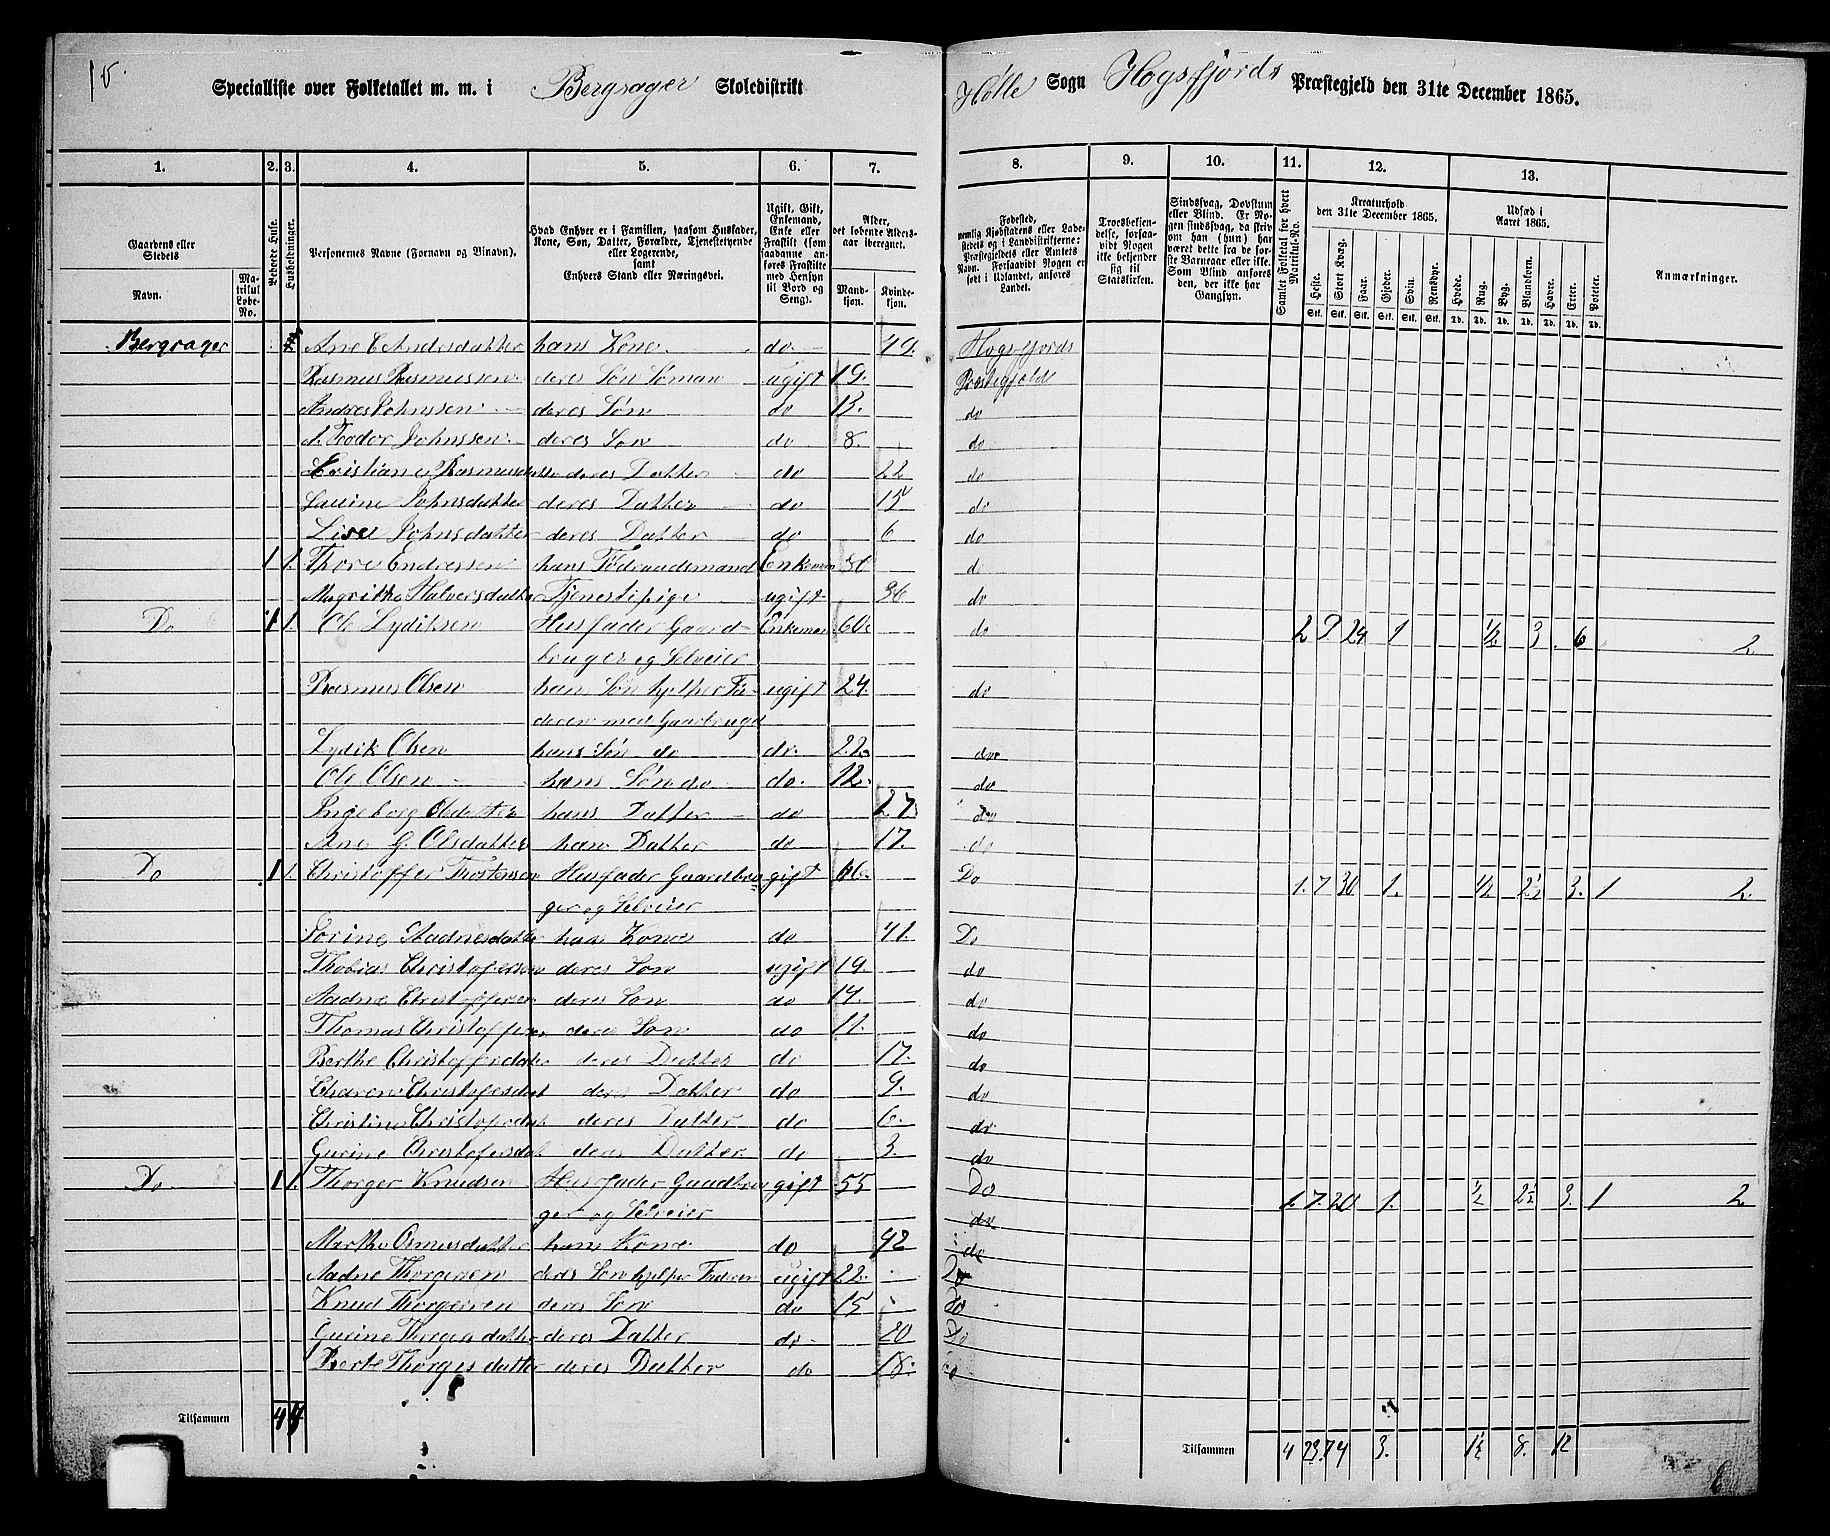 15.
Specialliste over Folketallet m. m. i Bergsager Skoledistrikt Holle Sogn Hogsfjords Præstegjeld den 31te December 1865.
1. 2. 3. 4. 5. 6. 7. 8. 9. 10. 11. 12. 13.
Gaardens eller Stedets
Navn.
Matrikul Løbe-No.
Beboede Huse.
Husholdninger.
Personernes Navne (Fornavn og Tilnavn).
Hvad Enhver er i Familien, saasom Husfader, Kone, Søn, Datter, Forældre, Tjenestetyende eller Logerende, samt Enhvers Stand eller Næringsvei.
Ugift, Gift, Enkemand, Enke eller Fraskilt (som saadanne anføres Fraskilte med Hensyn til Bord og Seng).
Alder, det løbende Aldersaar iberegnet.
Mandkjøn. Kvindekjøn.
Fødested, nemlig Kjøbstadens eller Ladestedets og i Landdistrikterne: Præstegjeldets eller Amtets Navn. Forsaavidt Nogen er født i Udlandet, anføres Landet.
Troesbekjendelse, forsaavidt Nogen ikke bekjender sig til Statskirken.
Sindssvag, Døvstum eller Blind. Er Nogen sindssvag, da skriv om han (hun) har været dette fra de første Barneaar eller ikke. Som Blind anføres den, der ikke har Gangsyn.
Samlet Folketal for hvert Matrikul-No.
Kreaturhold den 31te December 1865.
Heste. Stort Kvæg. Faar. Gjeder. Svin. Rensdyr.
Stk. Stk. Stk. Stk. Stk. Stk.
Udsæd i Aaret 1865.
Hvede. Rug. Byg. Blandkorn. Havre. Erter. Poteter.
Td. Td. Td. Td. Td. Td. Td.
Anmærkninger.
Bergsager Ane E Andersdatter hans Kone do 49. Hogsfjords
Rasmus Rasmussen deres Søn Søman ugift 19. Præstegjeld
Andres Johnssen deres Søn do 13. do
Johnssen deres Søn do 8. do
Rasmusdatter deres Datter do 22 do
Johnsdatter deres Datter do 15 do
Lise Johnsdatter deres Datter do 6 do
1 1. Thore Endressen hans Enkeman do
Halversdatter Tjenestepige ugift 36 do
Do 1 1. Ole Lydiksen Husfader Gaard- Enkeman 60. do 2 9 24 1 1/2 3 6 2
bruger og Selveier
Rasmus Olsen hans Søn hjelper Fa- ugift 24. do
deren med Gaarbruget
Lydik Olsen hans Søn do do. 22. do
Ole Olsen hans Søn do do. 12. do
Ingeborg Olsdatter hans Datter do 27 do
Ane G. Olsdatter hans Datter do 17. do
Do 1 1. Christoffer Thostensen Husfader Gaardbru gift 66. Do 1. 7 30 1. 1/2 2 1/2 3. 1 2.
ger og Selveier
Sorine Aadnesdatter hans Kone do 41. Do
Thobias Christofersen deres Søn ugift 19. do
Aadne Christoffersen deres Søn do 14. do
Thomas Christoffersen deres Søn do 11. do
Berthe Christoffersdatter deres Datter do 17. do
Christofersdat deres Datter do 9. do
Christine Christofersdat deres Datter do 6. do
Gurine Christofersdat deres Datter do 3. do
Do 1 1. Thorger Knudsen Husfader Gaadbru gift 55 Do 1 7. 20 1. 1/2 2 1/2 3. 1 2
ger og Selveier do
Marthe Osmusdatter hans Kone do 42 do
Aadne Thorgersen deres Søn hjelper Faderen ugift 22. Do
Knud Thorgersen deres Søn do 15 Do
Gurine Thorgersdatter deres Datter do 20 Do
Berte Thorgersdatter deres Datter do 18. do
Tilsammen 4 4
Tilsammen 4 23 74 3. 1 1/2 8. 12
6